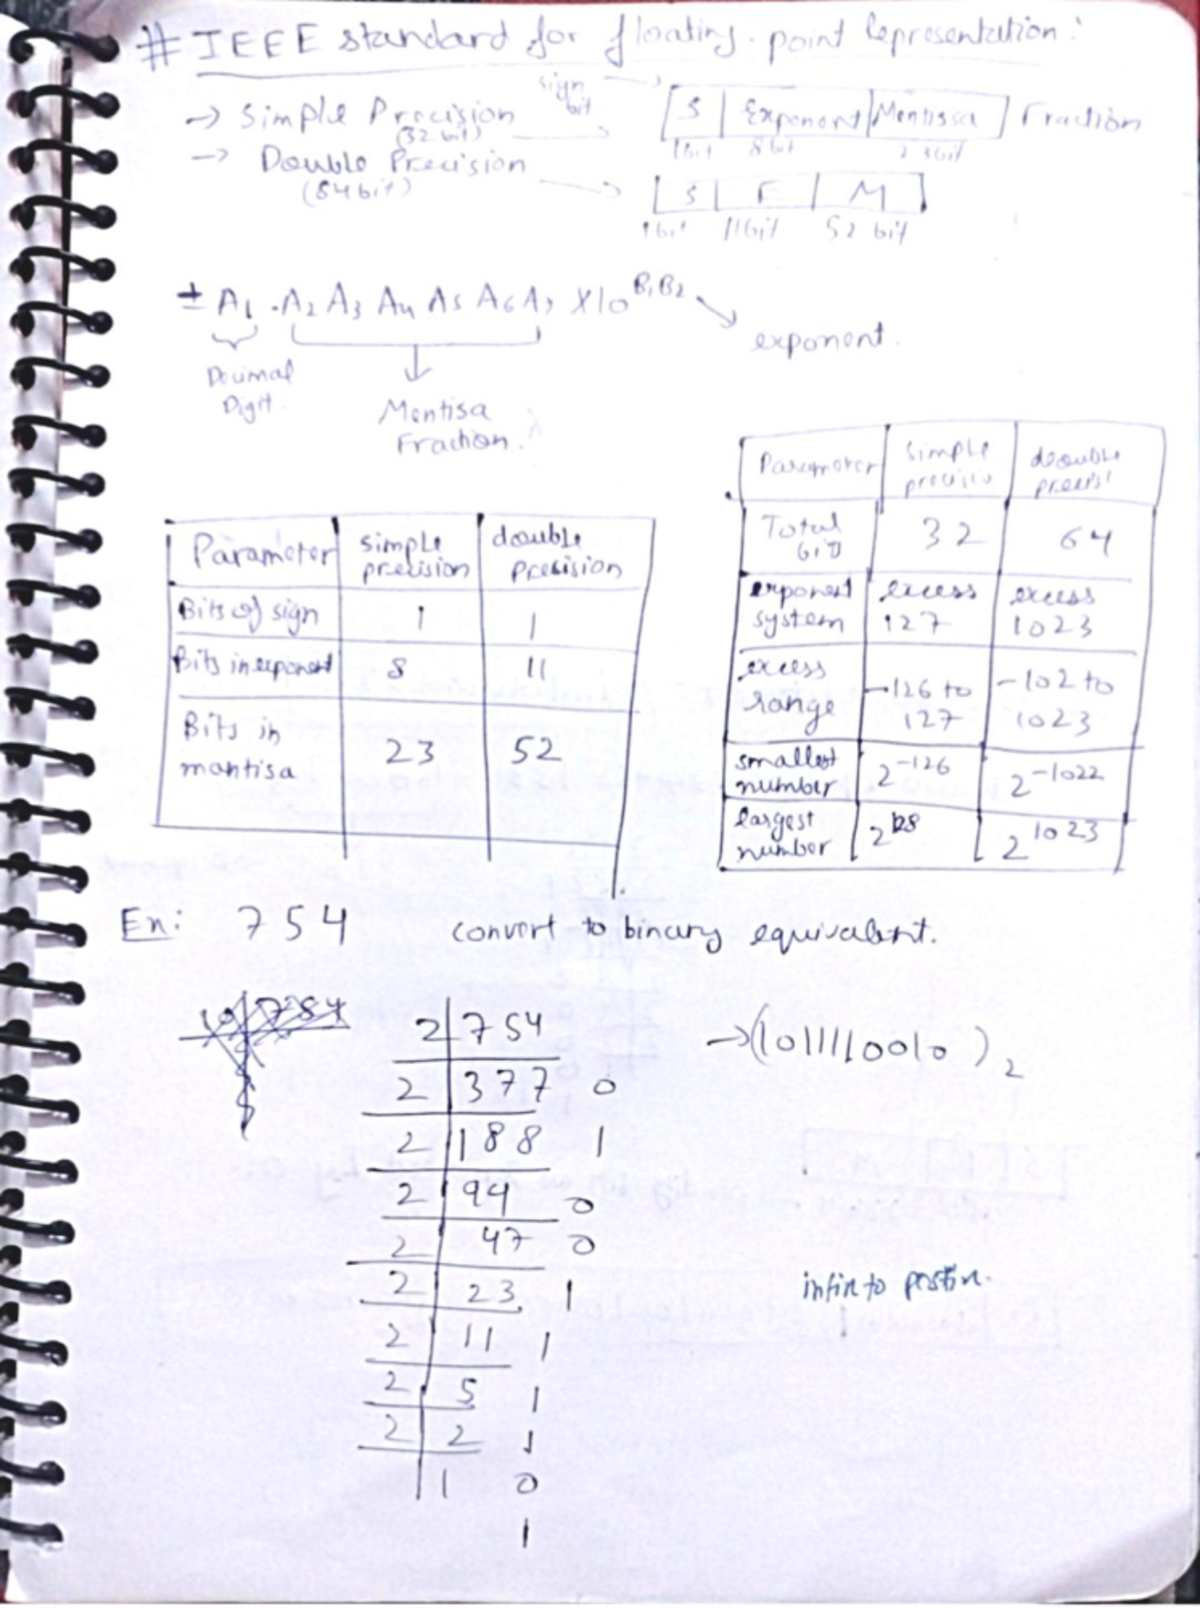 # IEEE standard for floating-point Representation:
→ Simple Precision (32 bit) → sign bit → S | Exponent | Mentissa Fraction
1bit 8bit 23bit
→ Double Precision (64 bit) → S | E | M
1bit 11bit 52 bit
± A1 . A2 A3 A4 A5 A6 A7 X10 B1B2 → exponent.
Decimal Digit.
Mentisa Fraction.
Parameter simple precision double precision
Bits of sign 1 1
Bits in exponent 8 11
Bits in mantisa 23 52
Parameter simple precisio double precisi
Total bits 32 64
exponent system excess 127 excess 1023
excess range -126 to 127 -102 to 1023
smallest number 2^-126 2^-1022
largest number 2^128 2^1023
En: 754 convert to binary equivalent.
2 754 → (1011110010)2
2 377 0
2 188 1
2 94 0
2 47 0
2 23 1
2 11 1
2 5 1
2 2 1
1 0
1
infin to postin.